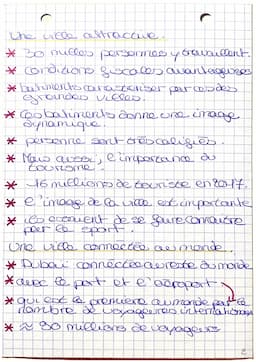 Une ville attractive.
* 30 milles personnes y travaillent.
* Conditions fiscales avantageuses
* batiments caractériser par ces des
grandes villes.
* Ces batiments donne une image
dynamique.
* personne sont très
* Mais aussi, l'importance du
tourisme.
* 16 millions de touriste en 2017.
* l'image de la ville est importante
* ils essaient de se faire connaitre
par le sport.
Une ville connectée au monde.
* Dubaï connectée au reste du monde
* avec le port et l'aéroport
* qui est le première au monde par le
nombre de voyageurs internationaux
* ≈ 90 millions de voyageurs